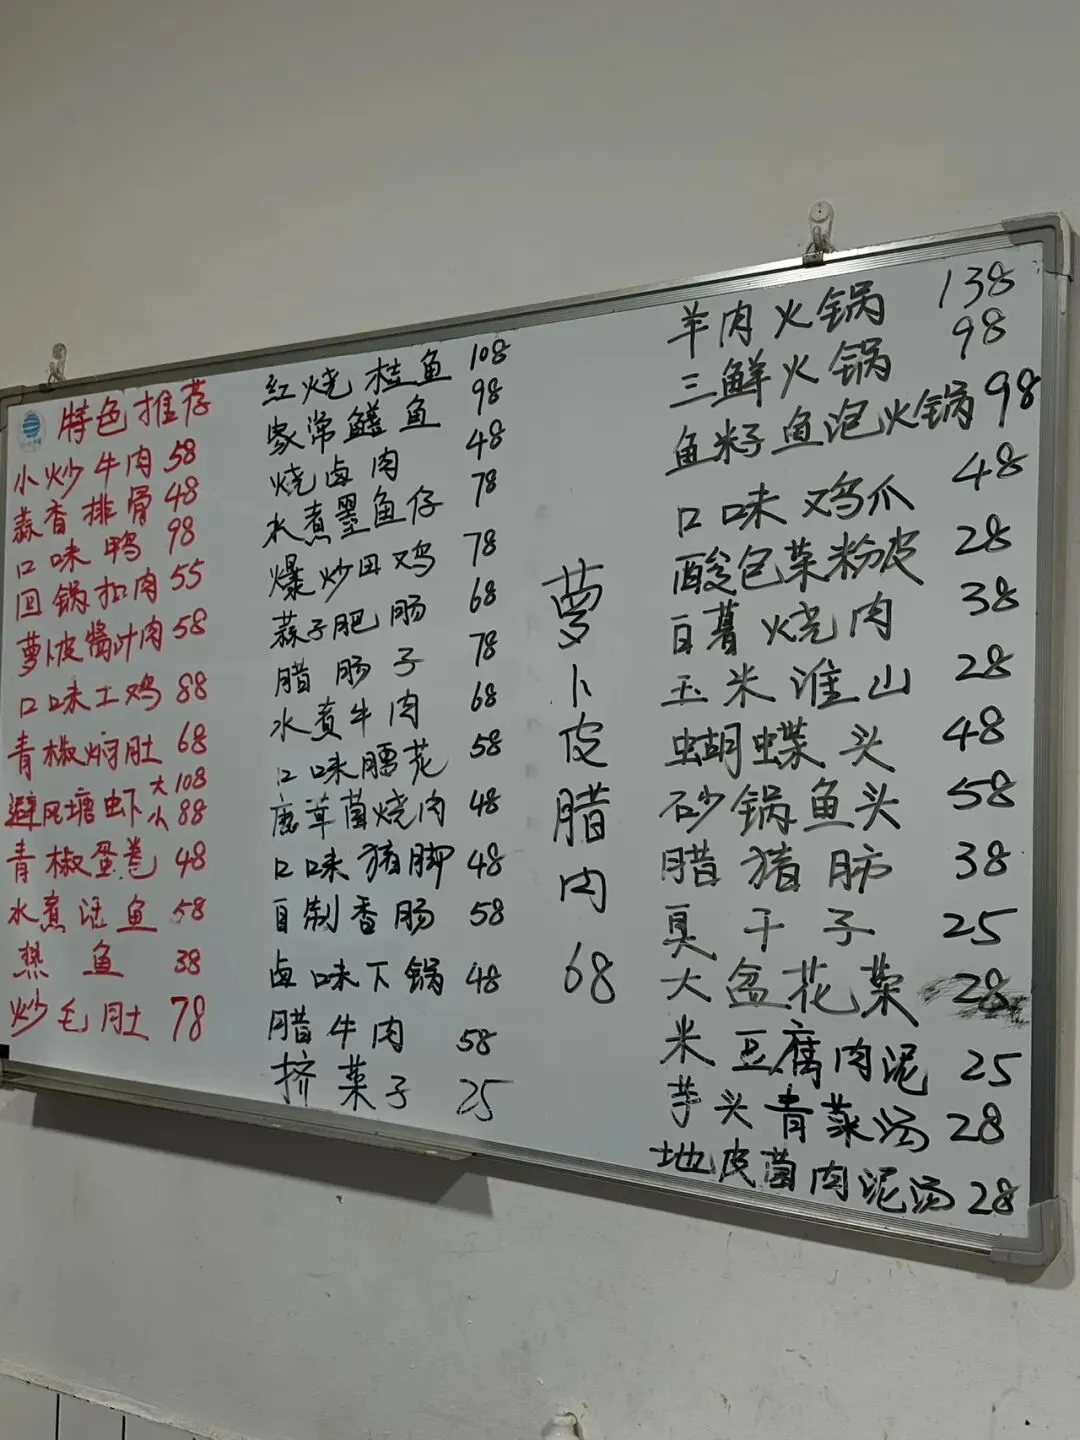 特色推荐
小炒牛肉 58
蒜香排骨 48
口味鸭 98
回锅扣肉 55
萝卜皮酱汁肉 58
口味土鸡 88
青椒焖肚 68
避风塘虾 大108 小88
青椒蛋卷 48
水煮活鱼 58
熬鱼 38
炒毛肚 78
红烧桂鱼 108
家常鳝鱼 98
烧卤肉 48
水煮墨鱼仔 78
爆炒田鸡 78
蒜子肥肠 68
腊肠子 78
水煮牛肉 68
口味腰花 58
鹿茸菌烧肉 48
口味猪脚 48
自制香肠 58
卤味下锅 48
腊牛肉 58
挤菜子 25
萝卜皮腊肉 68
羊肉火锅 138
三鲜火锅 98
鱼籽鱼泡火锅 98
口味鸡爪 48
酸包菜粉皮 28
百薯烧肉 38
玉米淮山 28
蝴蝶头 48
砂锅鱼头 58
腊猪肺 38
臭干子 25
大盆花菜 28
米豆腐肉泥 25
芋头青菜汤 28
地皮菌肉泥汤 28